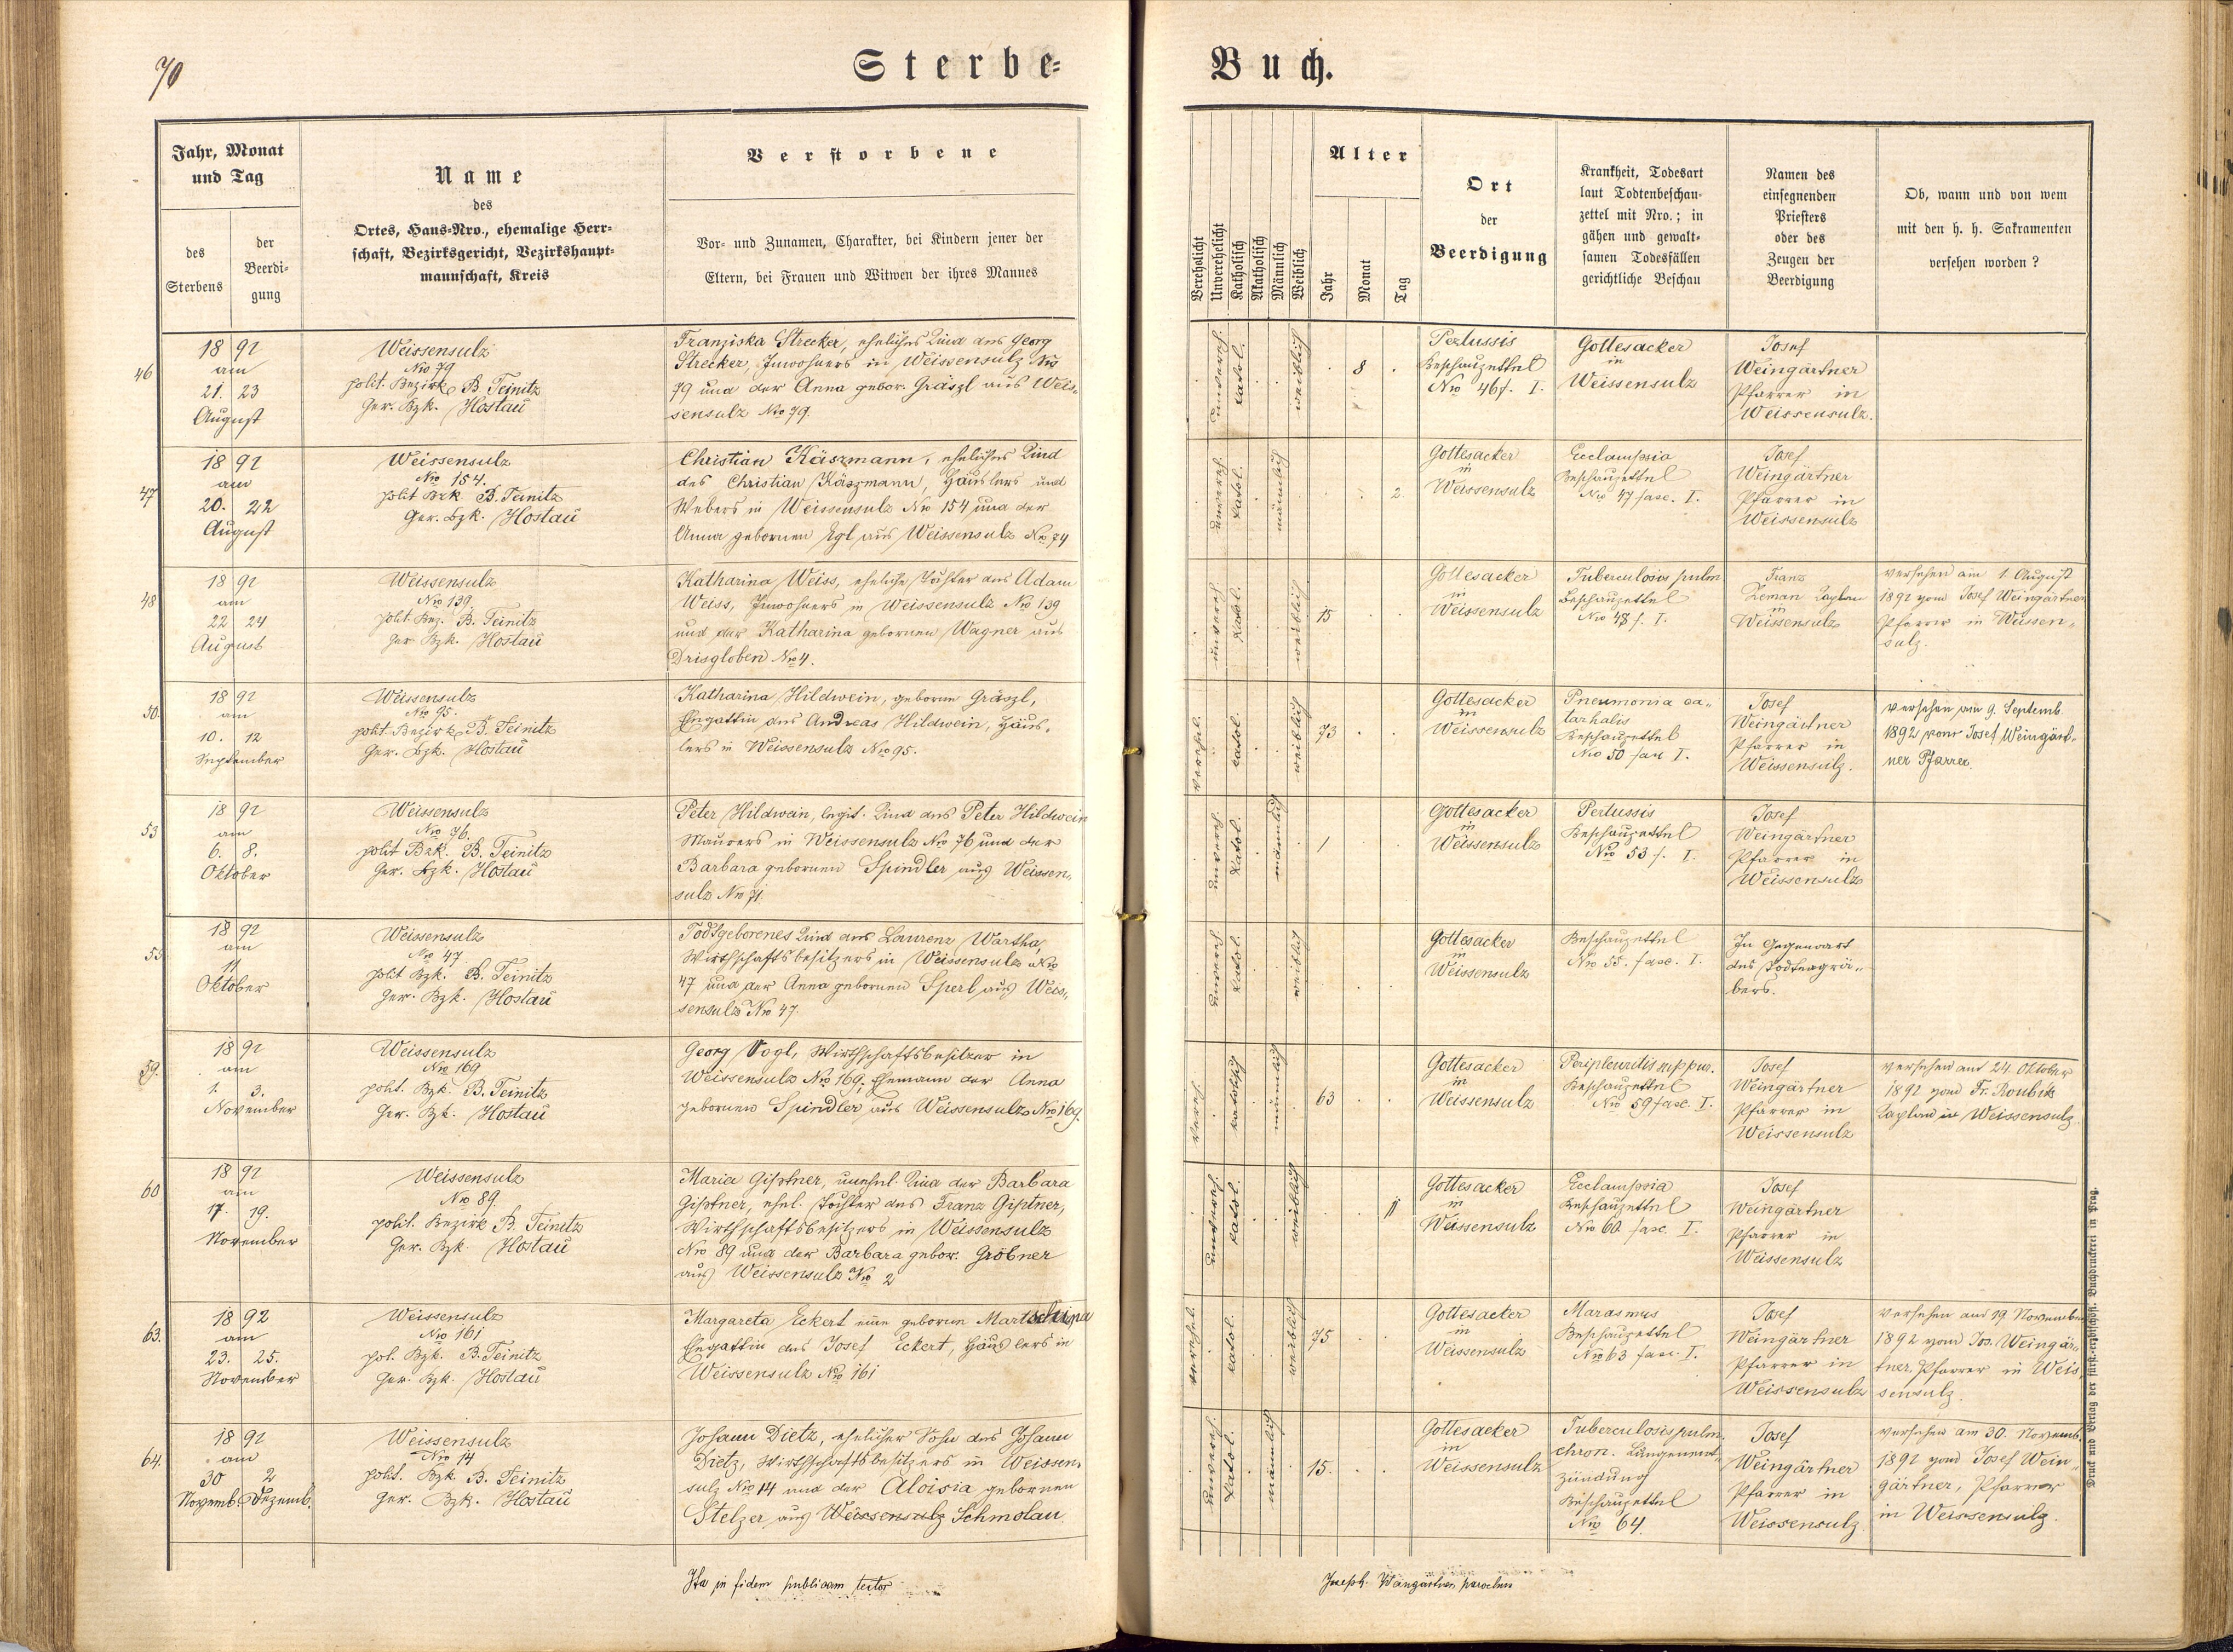 70
Sterbe=
Buch.
Jahr, Monat
und Tag
des
Sterbens
der
Beerdi-
gung
Name
des
Ortes, Haus-Nro., ehemalige Herr-
schaft, Bezirksgericht, Bezirkshaupt-
mannschaft, Kreis
Verstorbene
Vor- und Zunamen, Charakter, bei Kindern jener der
Eltern, bei Frauen und Witwen der ihres Mannes
Verehelicht
Unverehelicht
Katholisch
Akatholisch
Männlich
Weiblich
Alter
Jahr
Monat
Tag
Ort
der
Beerdigung
Krankheit, Todesart
laut Todtenbeschau-
zettel mit Nro.; in
gähen und gewalt-
samen Todesfällen
gerichtliche Beschau
Namen des
einsegnenden
Priesters
oder des
Zeugen der
Beerdigung
Ob, wann und von wem
mit den h. h. Sakramenten
versehen worden?
46
1892
am
21. 23
August
Weissensulz
Nro 79
polit. Bezirk B. Teinitz
Ger. Bzk. Hostau
Franziska Strecker, eheliches Kind des Georg
Strecker, Inwohners in Weissensulz Nro
79 und der Anna gebor. Gräszl aus Weis-
sensulz Nro 79.
unvereh.
kathol.
weiblich
8
Pertussis
Beschauzettel
Nro 46 f. I.
Gottesacker
in
Weissensulz
Josef
Weingärtner
Pfarrer in
Weissensulz.
47
1892
am
20. 22
August
Weissensulz
Nro 154.
polit Bzk. B. Teinitz
Ger. Bzk. Hostau
Christian Käszmann, eheliches Kind
des Christian Käszmann, Häuslers und
Webers in Weissensulz Nro 154 und der
Anna gebornen Egl aus Weissensulz Nro 74
unvereh.
kathol.
männlich
2.
Gottesacker
in
Weissensulz
Ecclampsia
Beschauzettel
Nro 47 fasc. I.
Josef
Weingärtner
Pfarrer in
Weissensulz
48
1892
am
22 24
August
Weissensulz
Nro 139
polit. Bez. B. Teinitz
Ger Bzk. Hostau
Katharina Weiss, eheliche Tochter des Adam
Weiss, Inwohners in Weissensulz Nro 139
und der Katharina gebornen Wagner aus
Drisgloben Nro 4.
unvereh.
kathol.
weiblich
15
Gottesacker
in
Weissensulz
Tuberculosis pulm
Beschauzettel
Nro 48 f. I.
Franz
Zeman Kaplan
in
Weissensulz
versehen am 1. August
1892 vom Josef Weingärtner
Pfarrer in Weissen-
sulz.
50.
1892
am
10. 12
September
Weissensulz
Nro 95.
polit Bezirk B. Teinitz
Ger. Bzk. Hostau
Katharina Hildwein, geborne Gräszl,
Ehgattin des Andreas Hildwein, Häus-
lers in Weissensulz Nro 95.
verehel.
kathol.
weiblich
73
Gottesacker
in
Weissensulz
Pneumonia ca-
tarhalis
Beschauzettel
Nro 50 fasc I.
Josef
Weingärtner
Pfarrer in
Weissensulz.
versehen am 9. Septemb.
1892 vom Josef Weingärt-
ner Pfarrer.
53
1892
am
6. 8.
Oktober
Weissensulz
Nro 76.
polit Bzk. B. Teinitz
Ger. Bzk. Hostau
Peter Hildwein, legit. Kind des Peter Hildwein
Maurers in Weissensulz Nro 76 und der
Barbara gebornen Spindler aus Weissen-
sulz Nro 71.
unvereh.
kathol.
männlich
1
Gottesacker
in
Weissensulz
Pertussis
Beschauzettel
Nro 53 f. I.
Josef
Weingärtner
Pfarrer in
Weissensulz
55
1892
am
11
Oktober
Weissensulz
Nro 47
polit Bzk. B. Teinitz
Ger. Bzk. Hostau
Todtgeborenes Kind des Laurenz Wartha,
Wirthschaftsbesitzers in Weissensulz Nro
47 und der Anna gebornen Sperl aus Weis-
sensulz Nro 47.
unvereh.
kathol.
weiblich
Gottesacker
in
Weissensulz
Beschauzettel
Nro 55. fasc. I.
In Gegenwart
des Todtengrä-
bers.
59.
1892
am
1. 3.
November
Weissensulz
Nro 169
polit. Bzk. B. Teinitz
Ger. Bzk. Hostau
Georg Vogl, Wirthschaftsbesitzer in
Weissensulz Nro 169, Ehemann der Anna
gebornen Spindler aus Weissensulz Nro 169.
vereh.
katholisch
männlich
63
Gottesacker
in
Weissensulz
Peripleuritis suppur.
Beschauzettel
Nro 59 fasc. I.
Josef
Weingärtner
Pfarrer in
Weissensulz
versehen am 24. Oktober
1892 vom Fr. Roubik
Kaplan in Weissensulz
60
1892
am
17. 19.
November
Weissensulz
Nro 89.
polit. Bezirk B. Teinitz
Ger. Bzk Hostau
Maria Giptner, unehel. Kind der Barbara
Giptner, ehel. Tochter des Franz Giptner,
Wirthschaftsbesitzers in Weissensulz
Nro 89 und der Barbara gebor. Gröbner
aus Weissensulz Nro 2
unvereh.
kathol.
weiblich
11
Gottesacker
in
Weissensulz
Ecclampsia
Beschauzettel
Nro 60 fasc. I.
Josef
Weingärtner
Pfarrer in
Weissensulz
63.
1892
am
23. 25.
November
Weissensulz
Nro 161
pol. Bzk. B. Teinitz
Ger. Bzk. Hostau
Margareta Eckert eine geborne Martschina
Ehgattin des Josef Eckert, Häuslers in
Weissensulz Nro 161
verehel.
kathol.
weiblich
75
Gottesacker
in
Weissensulz
Marasmus
Beschauzettel
Nro 63 fasc. I.
Josef
Weingärtner
Pfarrer in
Weissensulz
versehen am 19 November
1892 vom Jos. Weingär-
tner, Pfarrer in Weis-
sensulz.
64.
1892
am
30 2
Novemb. Dezemb.
Weissensulz
Nro 14
polit. Bzk B. Teinitz
Ger. Bzk. Hostau
Johann Dietz, ehelicher Sohn des Johann
Dietz, Wirthschaftsbesitzers in Weissen-
sulz Nro 14 und der Aloisia gebornen
Stelzer aus Weissensulz Schmolau.
unvereh.
kathol.
männlich
15.
Gottesacker
in
Weissensulz
Tuberculosis pulm.
chron. Lungenent-
zündung
Beschauzettel
Nro 64.
Josef
Weingärtner
Pfarrer in
Weissensulz.
versehen am 30. Novemb.
1892 vom Josef Wein-
gärtner, Pfarrer
in Weissensulz.
Ita in fidem publicam testor
Joseph. Weingärtner, parochus
Druck und Verlag der fürst.-erzbischöfl. Buchdruckerei in Prag.